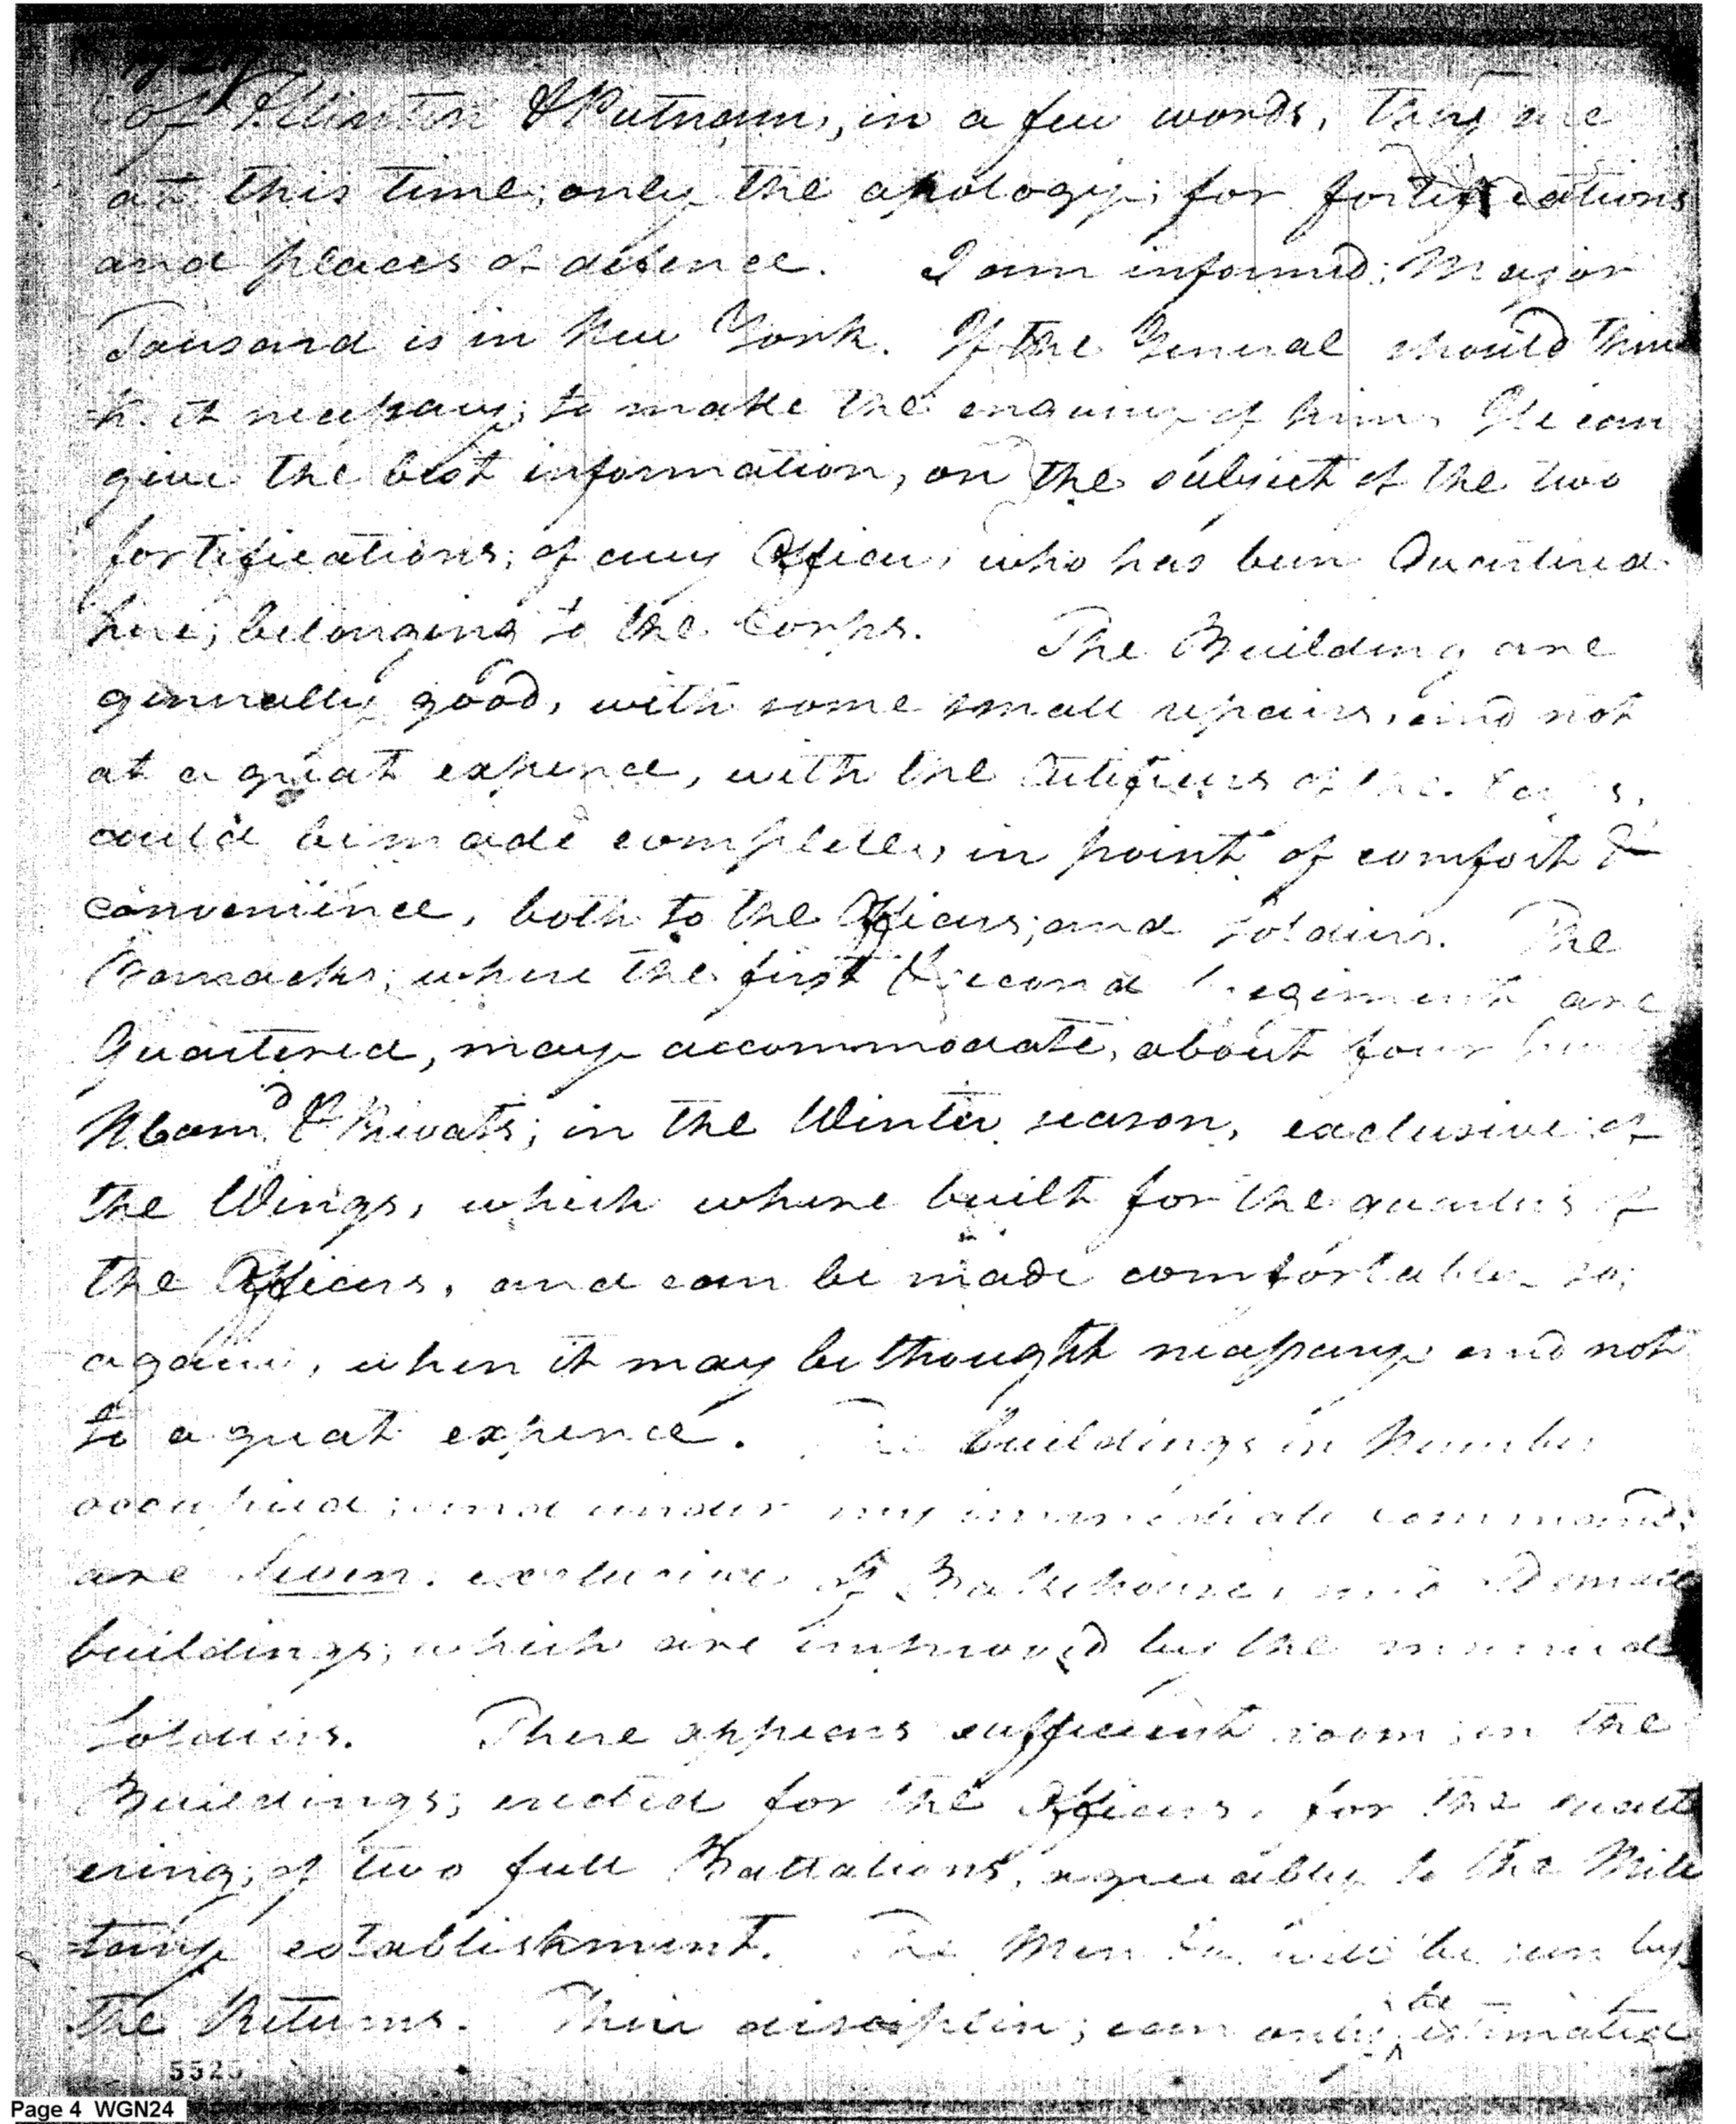 of Clinton & Putnam, in a few words, they are
at this time; only the apology; for fortifications
and places of defence. I am informed; Major
Tousard is in New York. If the General should thin
k it necessary; to make the enquiry of him. He can
give the best information, on the subject of the two
fortifications; of any Officer, who has been Quartered
here; belonging to the Corps. The Building are
generally good, with some small repairs, and not
at a great expence, with the Artificers of the Corps,
could be made complete, in point of comfort &
convenience, both to the Officers; and Soldiers. The
Barracks; where the first & second regiment are
Quartered, may accommodate, about four
NCom.d & Privats; in the Winter season, exclusive of
the Wings, which where built for the quarters of
the Officers, and can be made comfortable so;
again, when it may be thought necessary and not
to a great expence. The buildings in Number
occupied; and under my immediate command;
are Seven. exclusive of Bakehouse, and Small
buildings; which are improved by the married
Soldiers. There appears sufficient room; in the
Buildings; erected for the Officers, for the quart
ering; of two full Battalions, agreeably to the Mili
tary establishment. The Men will be seen by
the Returns. Their disciplin; can only be estimated
5525
Page 4 WGN24